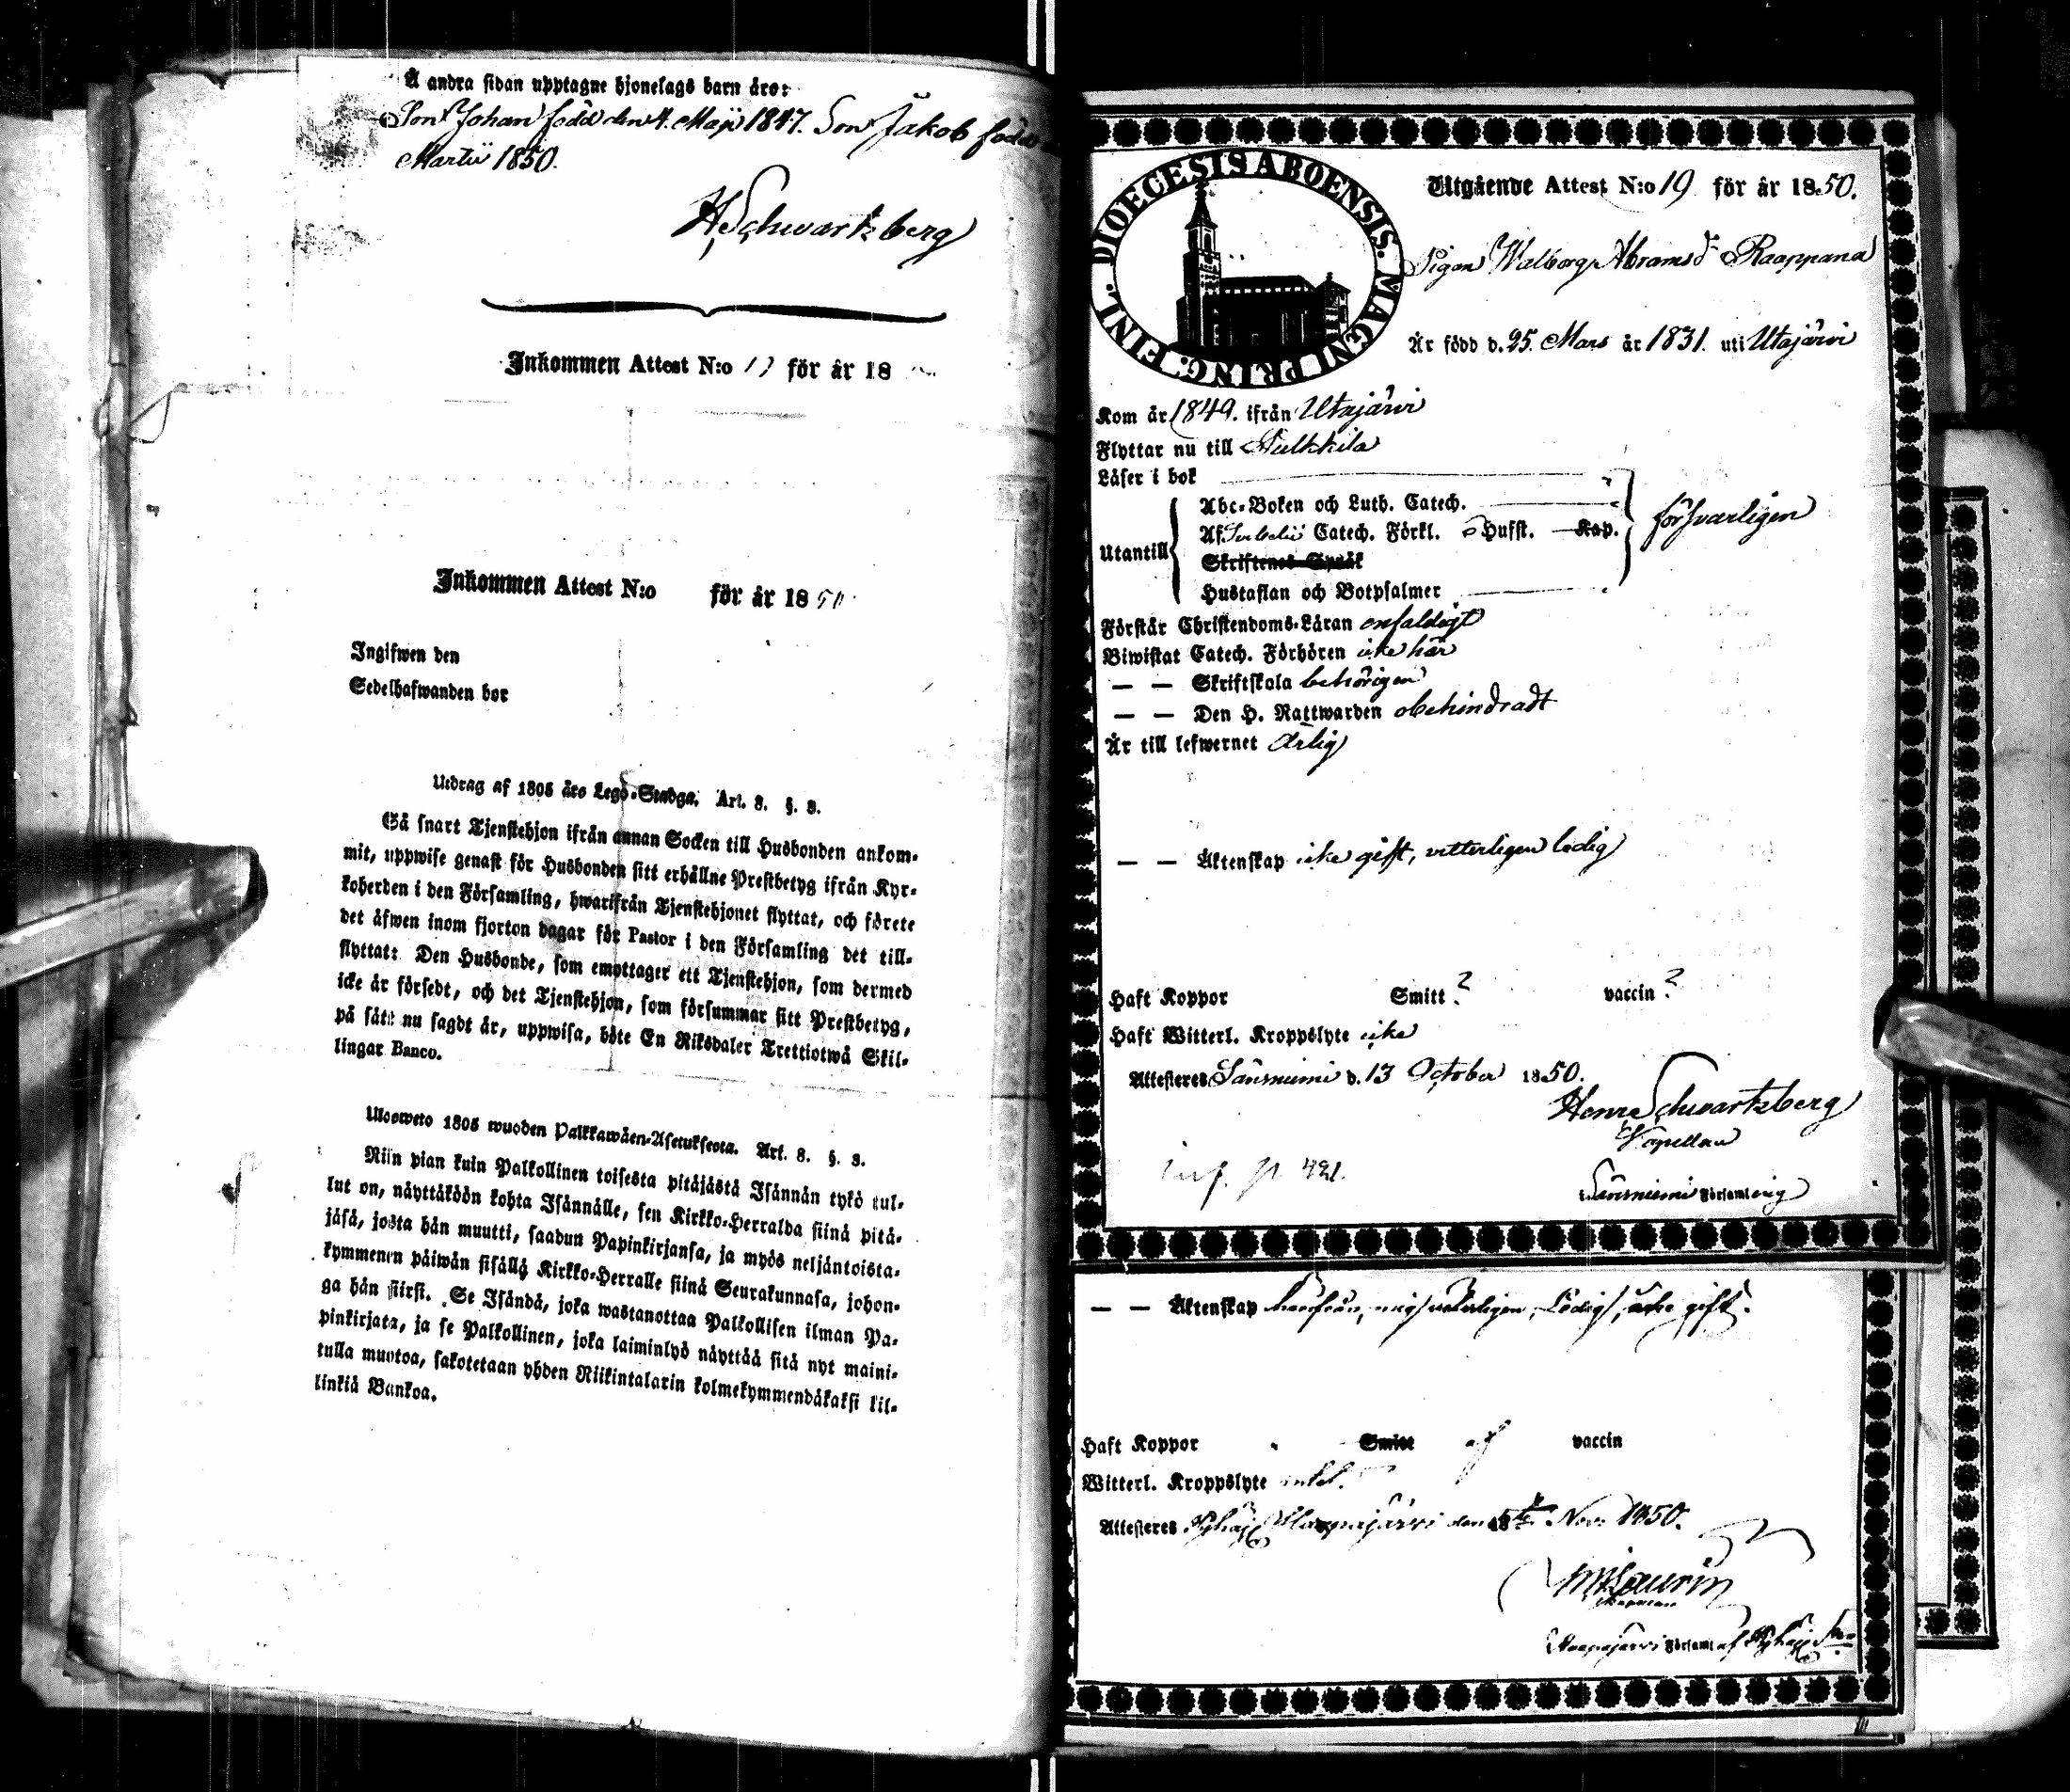 Å andra sidan upptagne hjonelags barn äro:
Son Johan född den 4. Maji 1847. Son Jakob född
Martii 1850.
H Schwartzberg
Inkommen Attest N:o 17 för år 18
Inkommen Attest N:o för år 1850
Ingifwen den
Sedelhafwanden bor
Utdrag af 1805 års Lego-Stadga. Art. 8. §. 3.
Så snart Tjenstehjon ifrån annan Socken till Husbonden ankom-
mit, uppwise genast för Husbonden sitt erhållne Prestbetyg ifrån Kyr-
koherden i den Församling, hwarifrån Tjenstehjonet flyttat, och förete
det äfwen inom fjorton dagar för Pastor i den Församling det till-
flyttat: Den Husbonde, som emottager ett Tjenstehjon, som dermed
icke är försedt, och det Tjenstehjon, som försummar sitt Prestbetyg,
på sätt nu sagdt är, uppwisa, böte En Riksdaler Trettiotwå Skil-
lingar Banco.
Ulosweto 1805 wuoden Palkkawäen-Asetuksesta. Art. 8. §. 3.
Niin pian kuin Palkollinen toisesta pitäjästä Isännän tykö tul-
lut on, näyttäköön kohta Isännälle, sen Kirkko-Herralda siinä pitä-
jäsä, josta hän muutti, saadun Papinkirjansa, ja myös neljäntoista-
kymmenen päiwän sisällä Kirkko-Herralle siinä Seurakunnasa, johon-
ga hän siirsi. Se Isändä, joka wastanottaa Palkollisen ilman Pa-
pinkirjata, ja se Palkollinen, joka laiminlyö näyttää sitä nyt maini-
tulla muotoa, sakotetaan yhden Riikintalarin kolmekymmendäkaksi kil-
linkiä Bankoa.
DIOECESIS ABOENSIS. MAGNI PRING. FINL.
Utgående Attest N:o 19 för år 1850.
Pigan Walborg Abramsdr Raappana
Är född d. 25. Mars år 1831. uti Utajärvi
Kom år 1849. ifrån Utajärvi
Flyttar nu till Pulkkila
Läser i bok
Abc-Boken och Luth. Catech.
Utantill Af Catech. Förkl. Hufst. Kap. försvarligen
Skriftenes Språk
Hustaflan och Botpsalmer
Förstår Christendoms-Läran enfaldigt
Biwistat Catech. Förhören icke här
— — Skriftskola behörigen
— — Den H. Nattwarden obehindradt
Är till lefwernet ärlig
— — Äktenskap icke gift, vetterligen ledig
Haft Koppor Smitt ? vaccin ?
Haft Witterl. Kroppslyte icke
Attesteres Säräisniemi d. 13 October 1850.
Henr Schwartzberg
Capellan
i Säräisniemi Församling
inf. p. 421.
— — Äktenskap härifrån, mig vetterligen, Ledig, icke gift.
Haft Koppor Smitt af vaccin
Witterl. Kroppslyte intet.
Attesteres Pyhäj. Haapajärvi den 5te Nov. 1850.
Laurin
Kapellan
Haapajärvi Församl. af Pyhäj. Sn